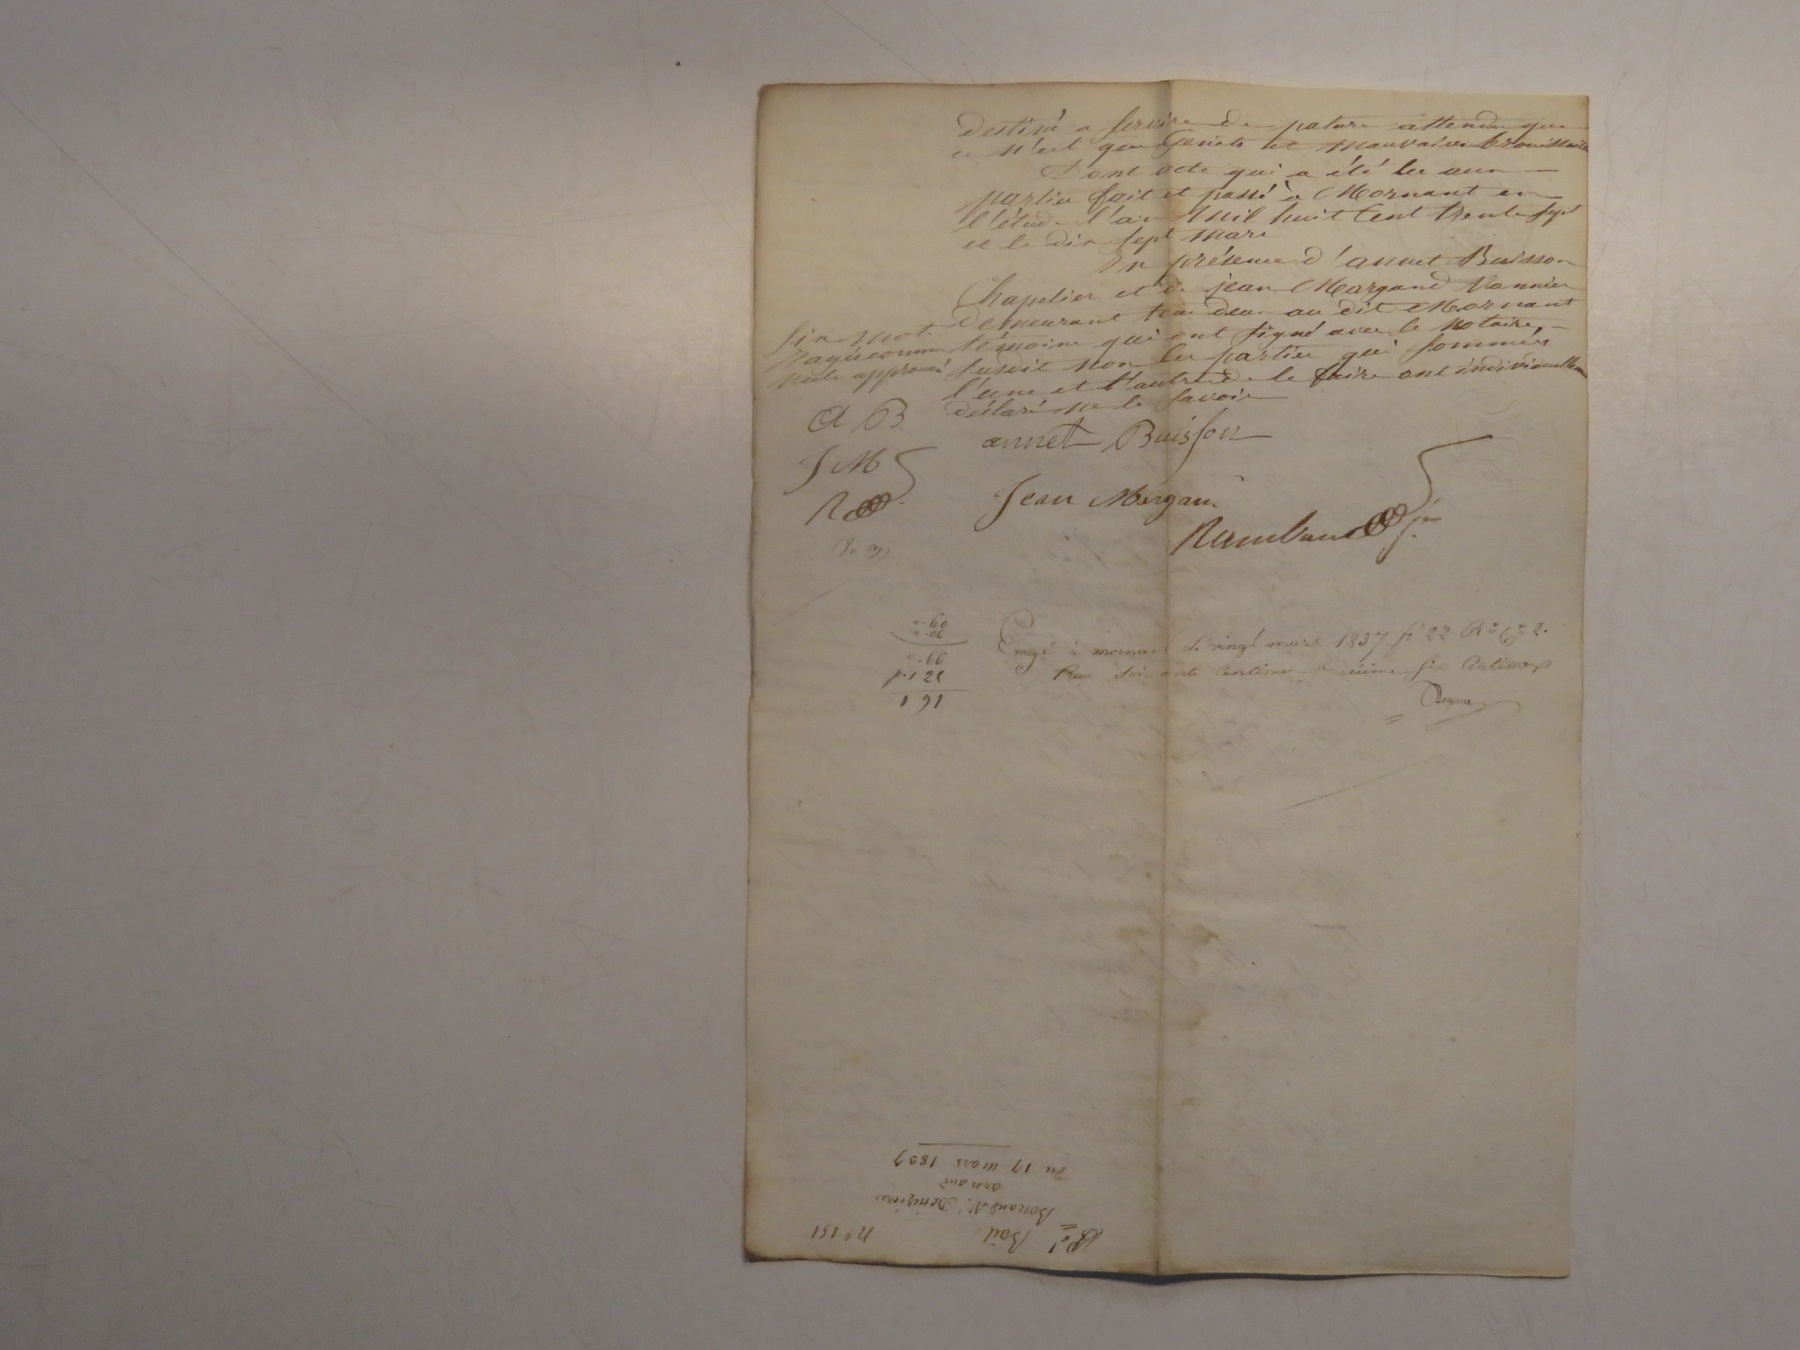 destiné a servire de pature attendu que
ce n'est que Genets et mauvaises brouissailles
Dont acte qui a été lu aux
parties fait et passé à Mornant en
l'étude l'an mil huit cent trente sept
et le dix sept mars
En présence d'annet Buisson
Chapelier et de jean Margand Vannier
demeurant tous deux au dit Mornant
témoins qui ont signé avec le notaire,
susdit non les parties qui sommées
l'une et l'autre de le faire ont individuellement
déclaré ne le savoir
six mots
rayés comme
nuls approuvé
A B
J M
R
annet Buisson
Jean Margan
Rambaud
Enregé à mornant le vingt mars 1837 f° 22 R° C° 2.
Reçu soixante centimes décime six centimes
60
30
99
1 22
1 61
n° 151
Bail
Bonnand
arnaud
Du 17 mars 1837